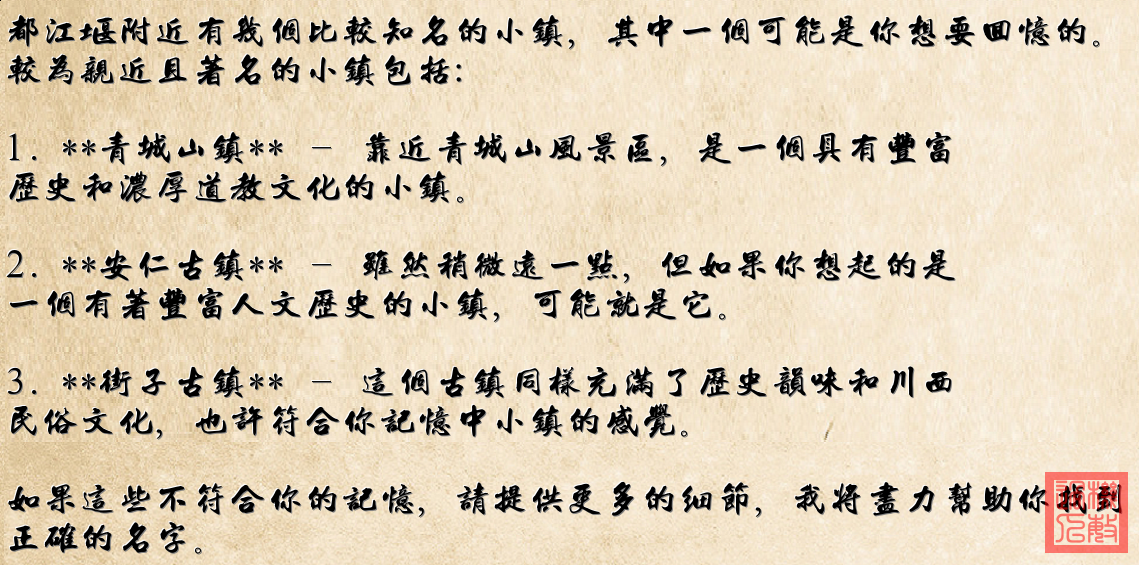 都江堰附近有幾個比較知名的小鎮，其中一個可能是你想要回憶的。
較為親近且著名的小鎮包括：
1. **青城山鎮** – 靠近青城山風景區，是一個具有豐富
歷史和濃厚道教文化的小鎮。
2. **安仁古鎮** – 雖然稍微遠一點，但如果你想起的是
一個有著豐富人文歷史的小鎮，可能就是它。
3. **街子古鎮** – 這個古鎮同樣充滿了歷史韻味和川西
民俗文化，也許符合你記憶中小鎮的感覺。
如果這些不符合你的記憶，請提供更多的細節，我將盡力幫助你找到
正確的名字。